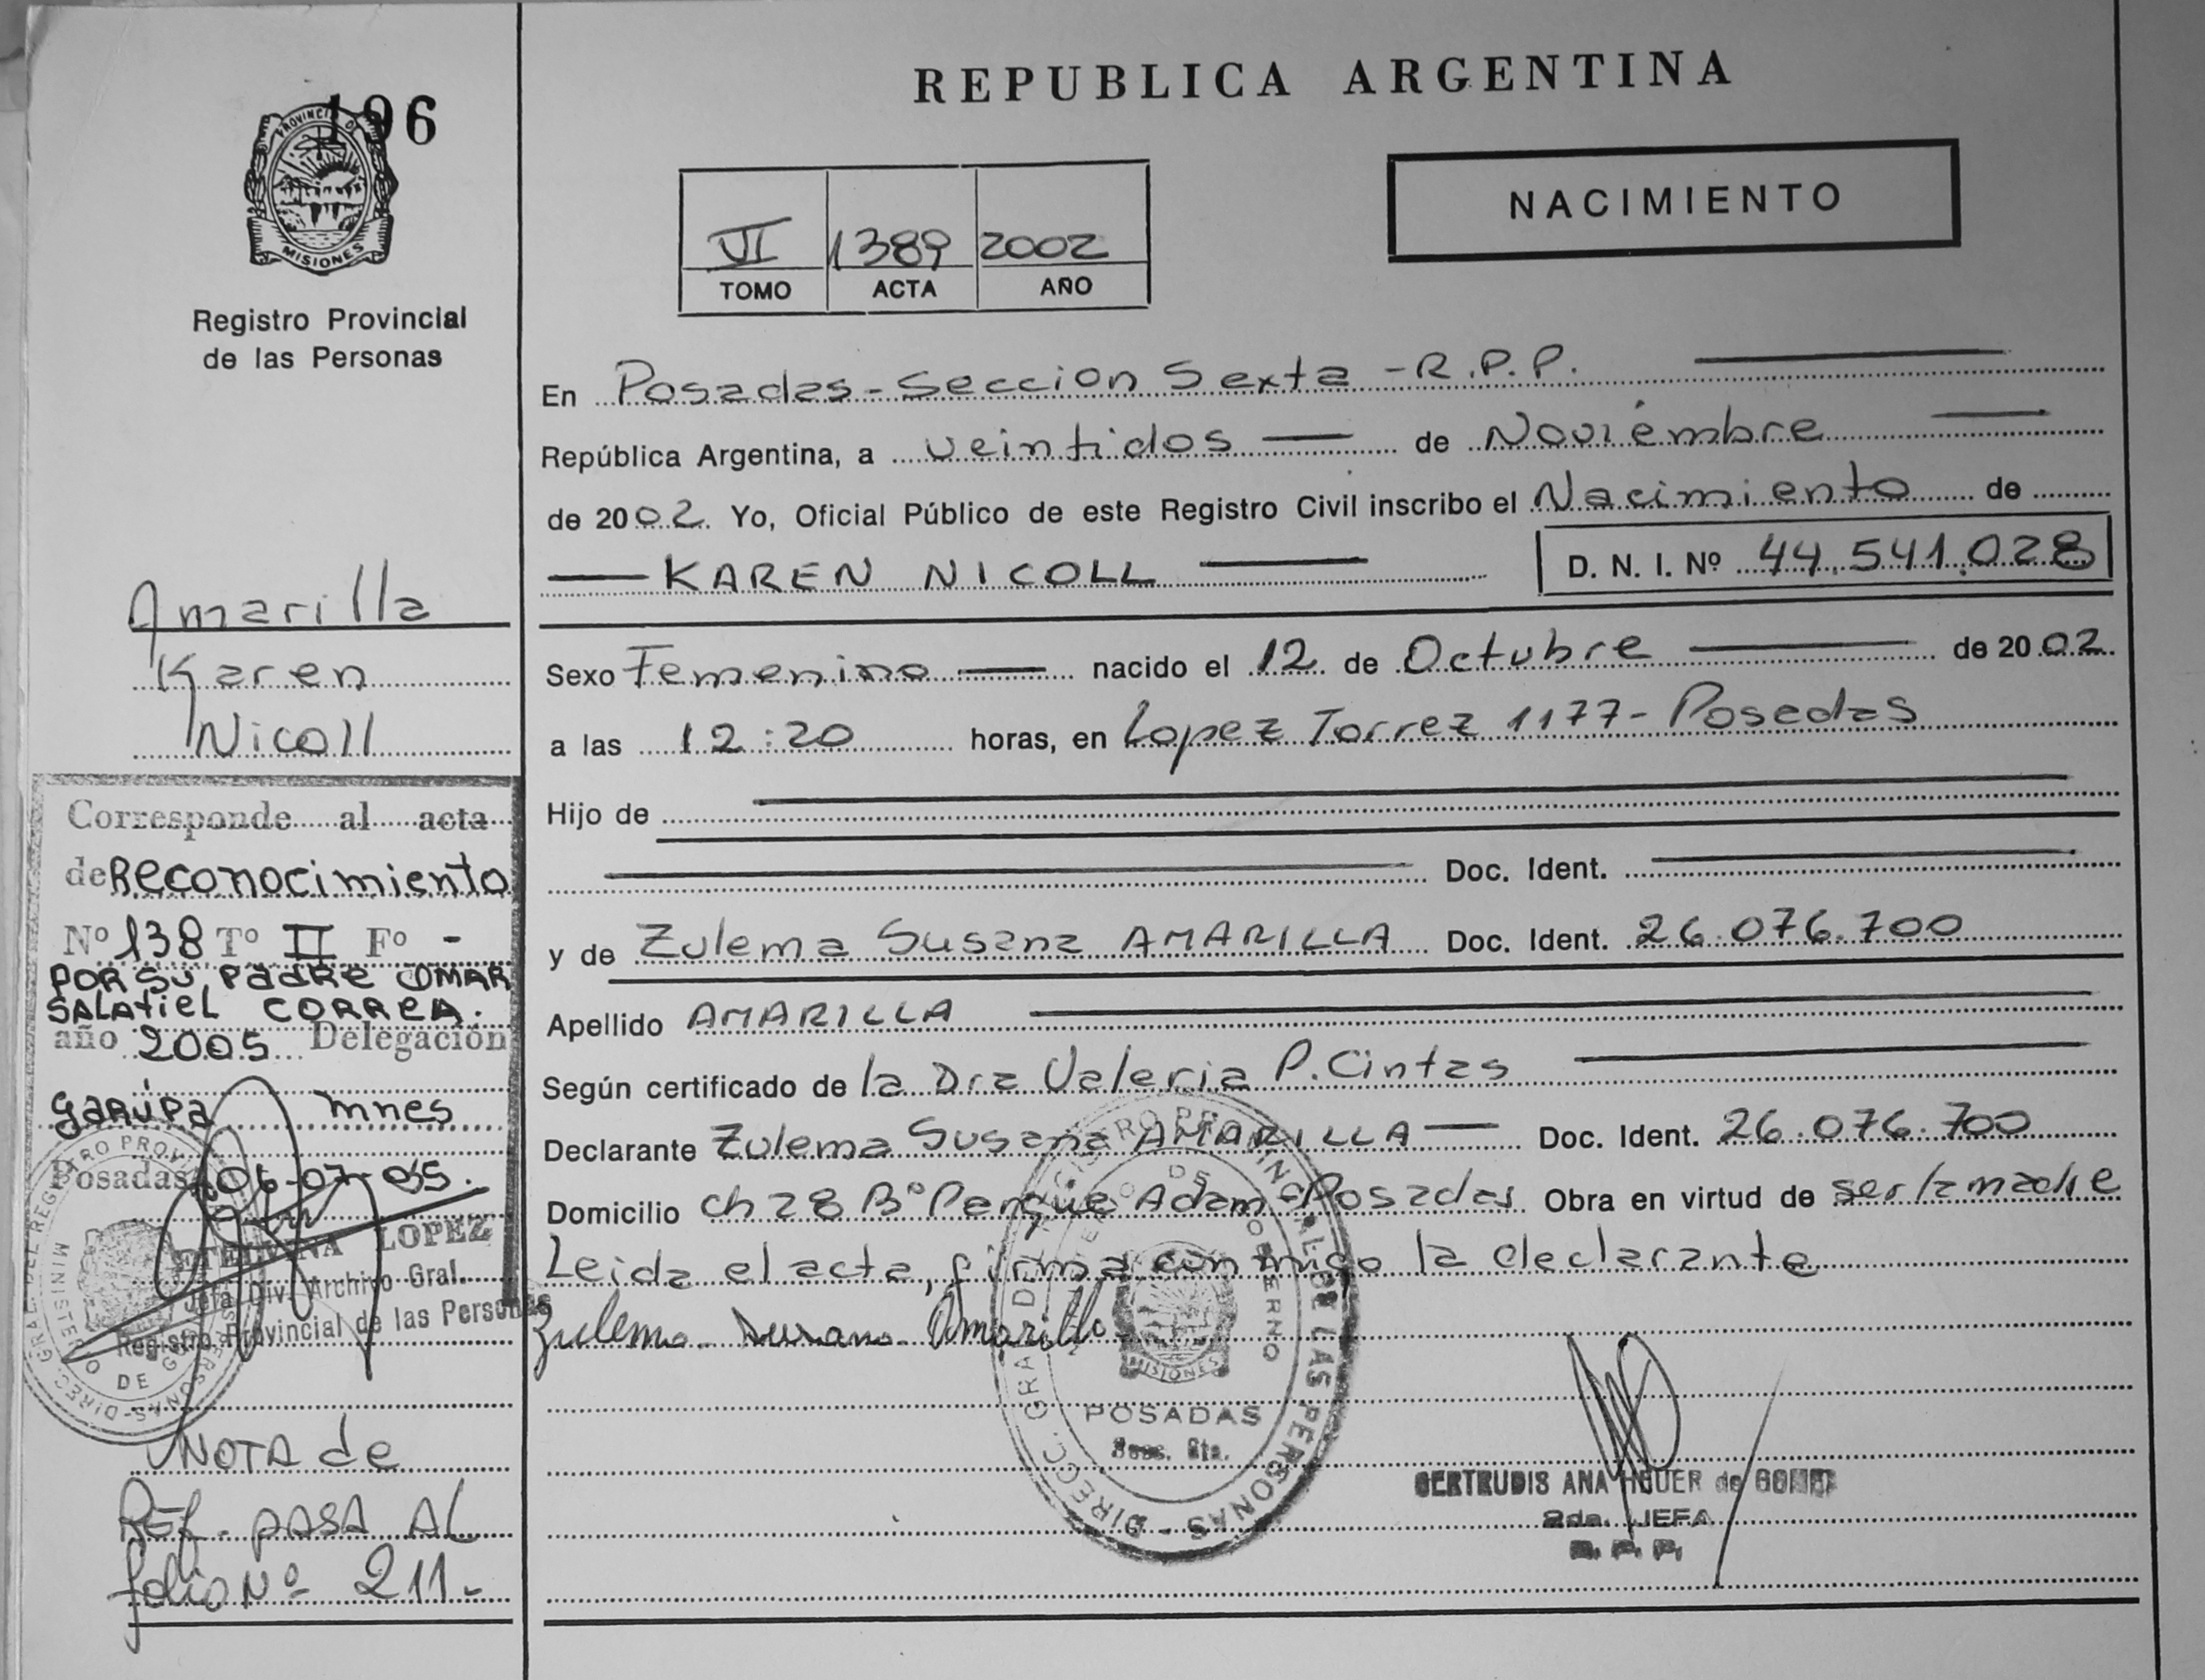 196
PROVINCIA DE
MISIONES
Registro Provincial
de las Personas
Amarilla
Karen
Nicoll
Corresponde al acta
de Reconocimiento
Nº 138 Tº II Fº -
POR SU PADRE OMAR
SALATIEL CORREA.
año 2005 Delegación
GARUPA mnes
Posadas, 06-07-05.
ETELVINA LOPEZ
Jefa Div. Archivo Gral.
Registro Provincial de las Personas
NOTA de
REF. PASA AL
folio Nº 211.-
REPUBLICA ARGENTINA
NACIMIENTO
VI 1389 2002
TOMO ACTA AÑO
En Posadas - Seccion Sexta - R.P.P.
República Argentina, a veintidos de Noviembre
de 2002. Yo, Oficial Público de este Registro Civil inscribo el Nacimiento de
KAREN NICOLL D. N. I. Nº 44.541.028
Sexo Femenino nacido el 12 de Octubre de 2002.
a las 12:20 horas, en Lopez Torrez 1177 - Posadas
Hijo de
Doc. Ident.
y de Zulema Susana AMARILLA Doc. Ident. 26.076.700
Apellido AMARILLA
Según certificado de la Dra Valeria P. Cintas
Declarante Zulema Susana AMARILLA Doc. Ident. 26.076.700
Domicilio Ch 28 Bº Parque Adam - Posadas Obra en virtud de ser la madre
Leida el acta, firma conmigo la declarante
Zulema Susana Amarilla
DIRECC. GRAL. DEL REGISTRO PROVINCIAL DE LAS PERSONAS
MINISTERIO DE GOBIERNO
MISIONES
POSADAS
Secc. 6ta.
GERTRUDIS ANA HEUER de
2da. JEFA
R. P. P.